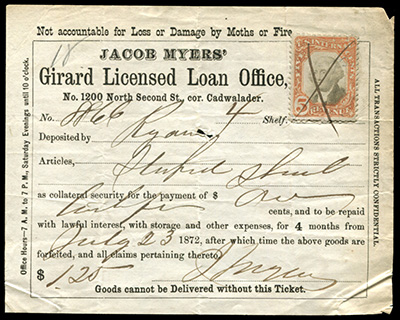 Not accountable for Loss or Damage by Moths or Fire
18
JACOB MYERS'
Girard Licensed Loan Office,
No. 1200 North Second St., cor. Cadwalader.
No. Shelf. 4
Deposited by Ryan
Articles, Shawl
as collateral security for the payment of $ One
cents, and to be repaid
with lawful interest, with storage and other expenses, for 4 months from
July 23 1872, after which time the above goods are
forfeited, and all claims pertaining thereto.
$ 1.25 J Myers
Goods cannot be Delivered without this Ticket.
Office Hours—7 A. M. to 7 P. M., Saturday Evenings until 10 o'clock.
ALL TRANSACTIONS STRICTLY CONFIDENTIAL.
U.S. INTER. REVENUE